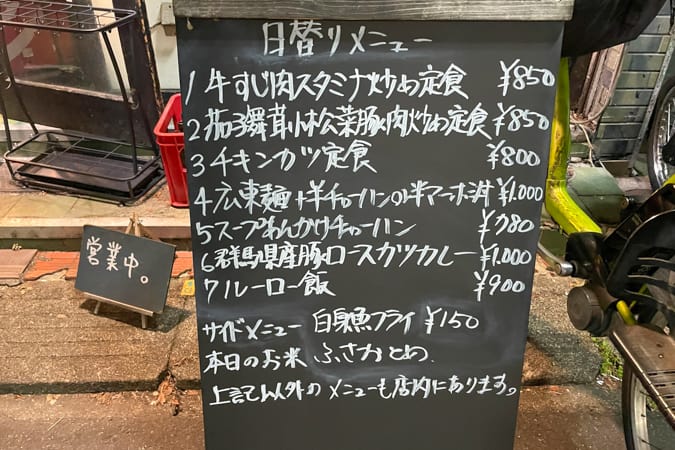 日替りメニュー
1 牛すじ肉スタミナ炒め定食 ¥850
2 茄子舞茸小松菜豚肉炒め定食 ¥850
3 チキンカツ定食 ¥800
4 広東麺+半チャーハンor半マーボ丼 ¥1.000
5 スープあんかけチャーハン ¥780
6 群馬県産豚ロースカツカレー ¥1.000
7 ルーロー飯 ¥900
サイドメニュー 白身魚フライ ¥150
本日のお米 ふさおとめ.
上記以外のメニューも店内にあります。
営業中。